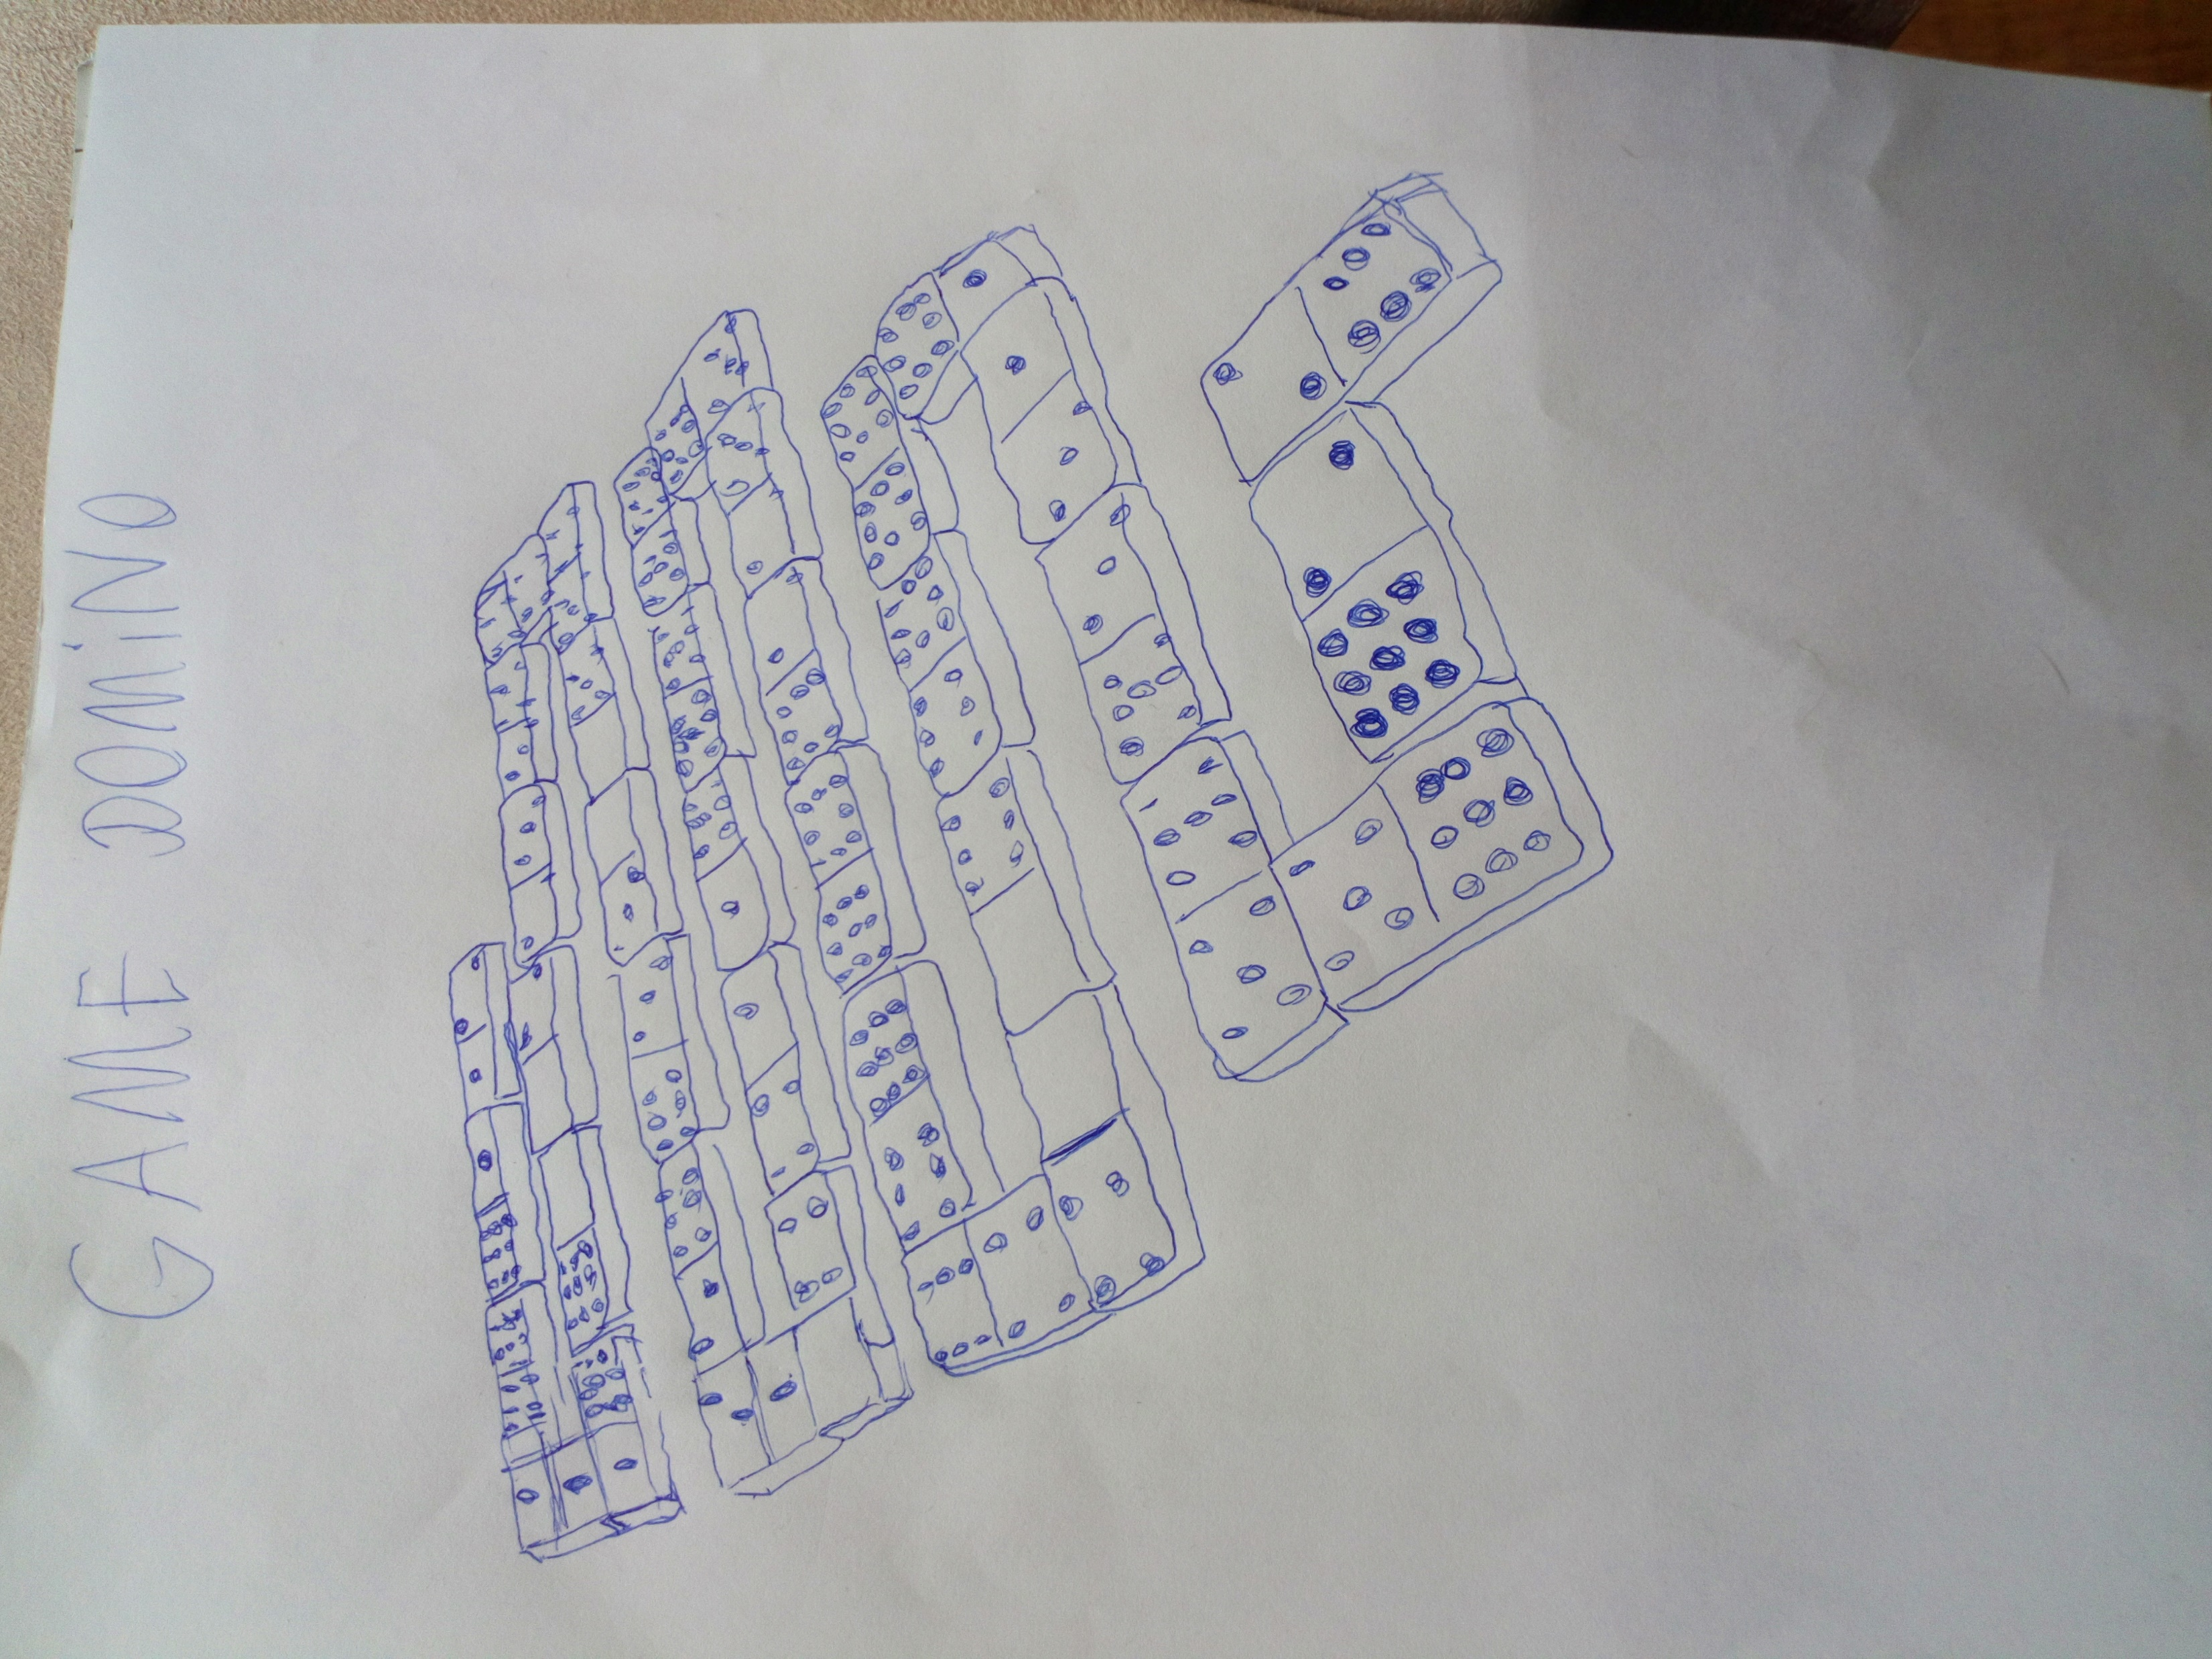 GAME DOMiNO